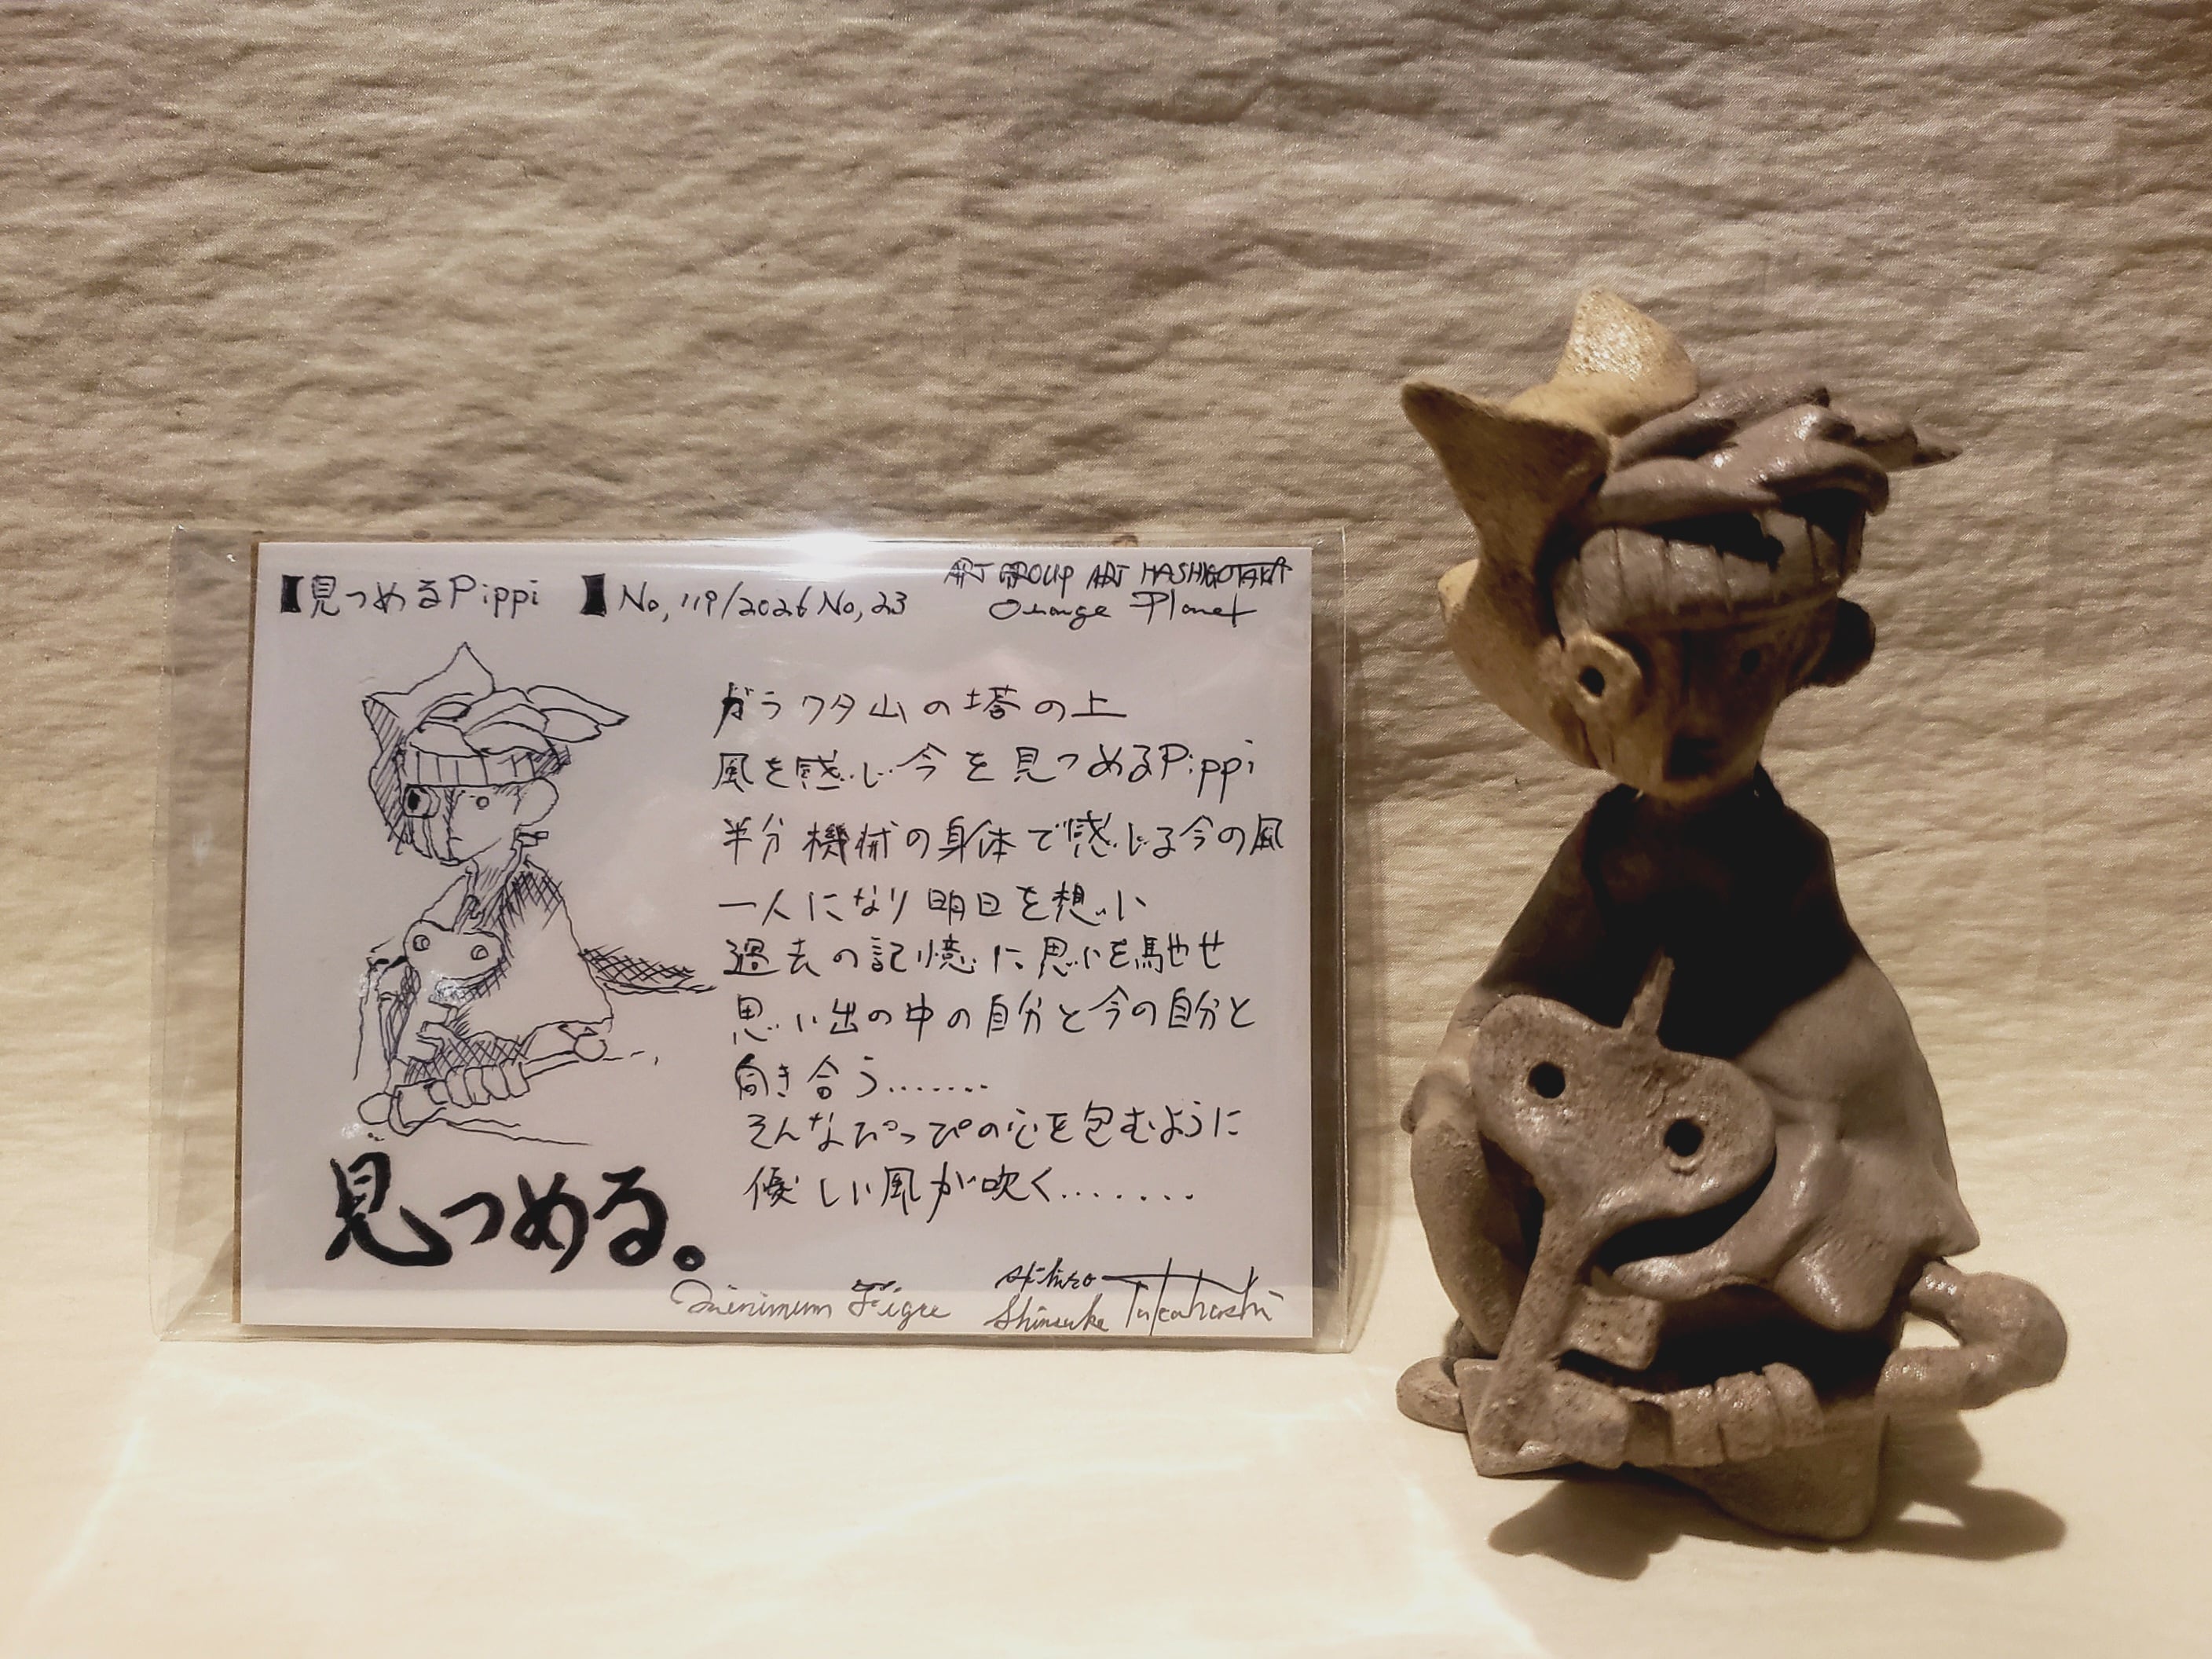 【見つめるPippi 】No,119/2026 No,23
ART GROUP ART HASHIGOTAKA
Orange Planet
ガラクタ山の塔の上
風を感じ今を見つめるPippi
半分機械の身体で感じる今の風
一人になり明日を想い
過去の記憶に思いを馳せ
思い出の中の自分と今の自分と
向き合う.......
そんなぴっぴの心を包むように
優しい風が吹く.......
見つめる。
Minimum Figre
Akihiro
Shinsuke Takahashi